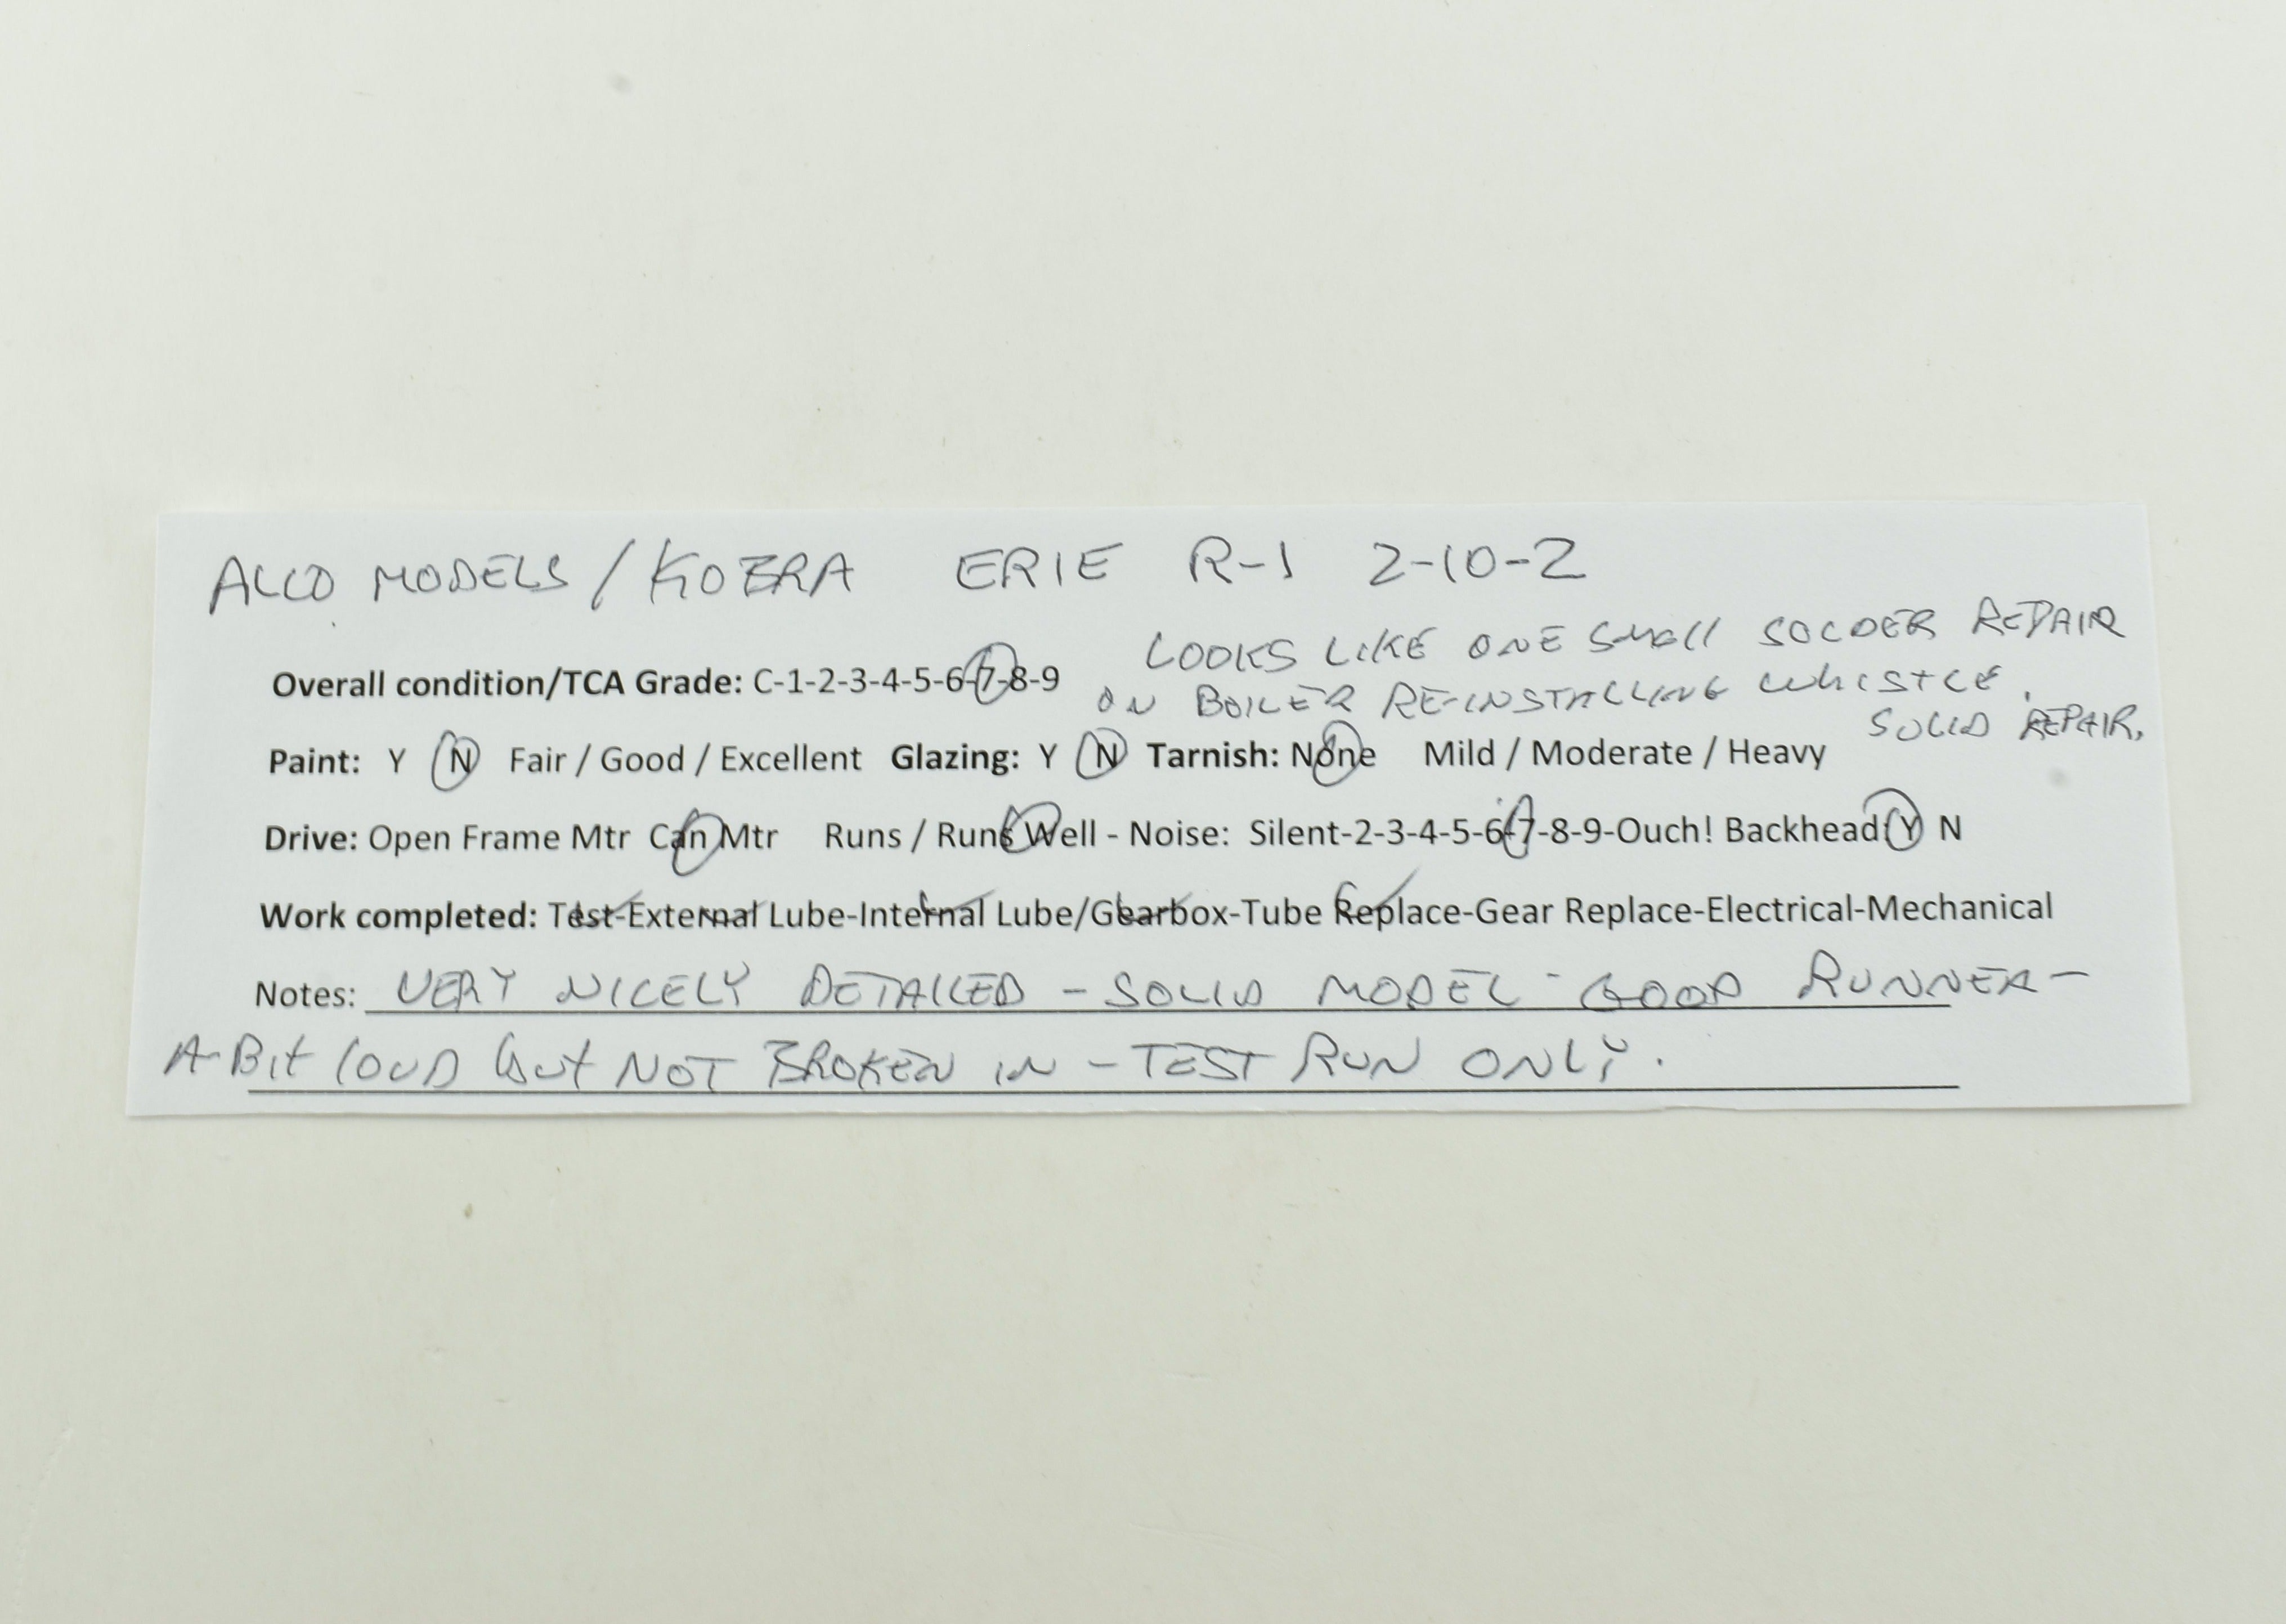 ALCO MODELS / KOBRA ERIE R-1 2-10-2
LOOKS LIKE ONE SMALL SOLDER REPAIR
Overall condition/TCA Grade: C-1-2-3-4-5-6-7-8-9
ON BOILER RE-INSTALLING WHISTLE.
SOLID REPAIR.
Paint: Y N Fair / Good / Excellent Glazing: Y N Tarnish: None Mild / Moderate / Heavy
Drive: Open Frame Mtr Can Mtr Runs / Runs Well - Noise: Silent-2-3-4-5-6-7-8-9-Ouch! Backhead: Y N
Work completed: Test-External Lube-Internal Lube/Gearbox-Tube Replace-Gear Replace-Electrical-Mechanical
Notes: VERY NICELY DETAILED - SOLID MODEL - GOOD RUNNER -
A-Bit LOUD but NOT BROKEN IN - TEST RUN ONLY.